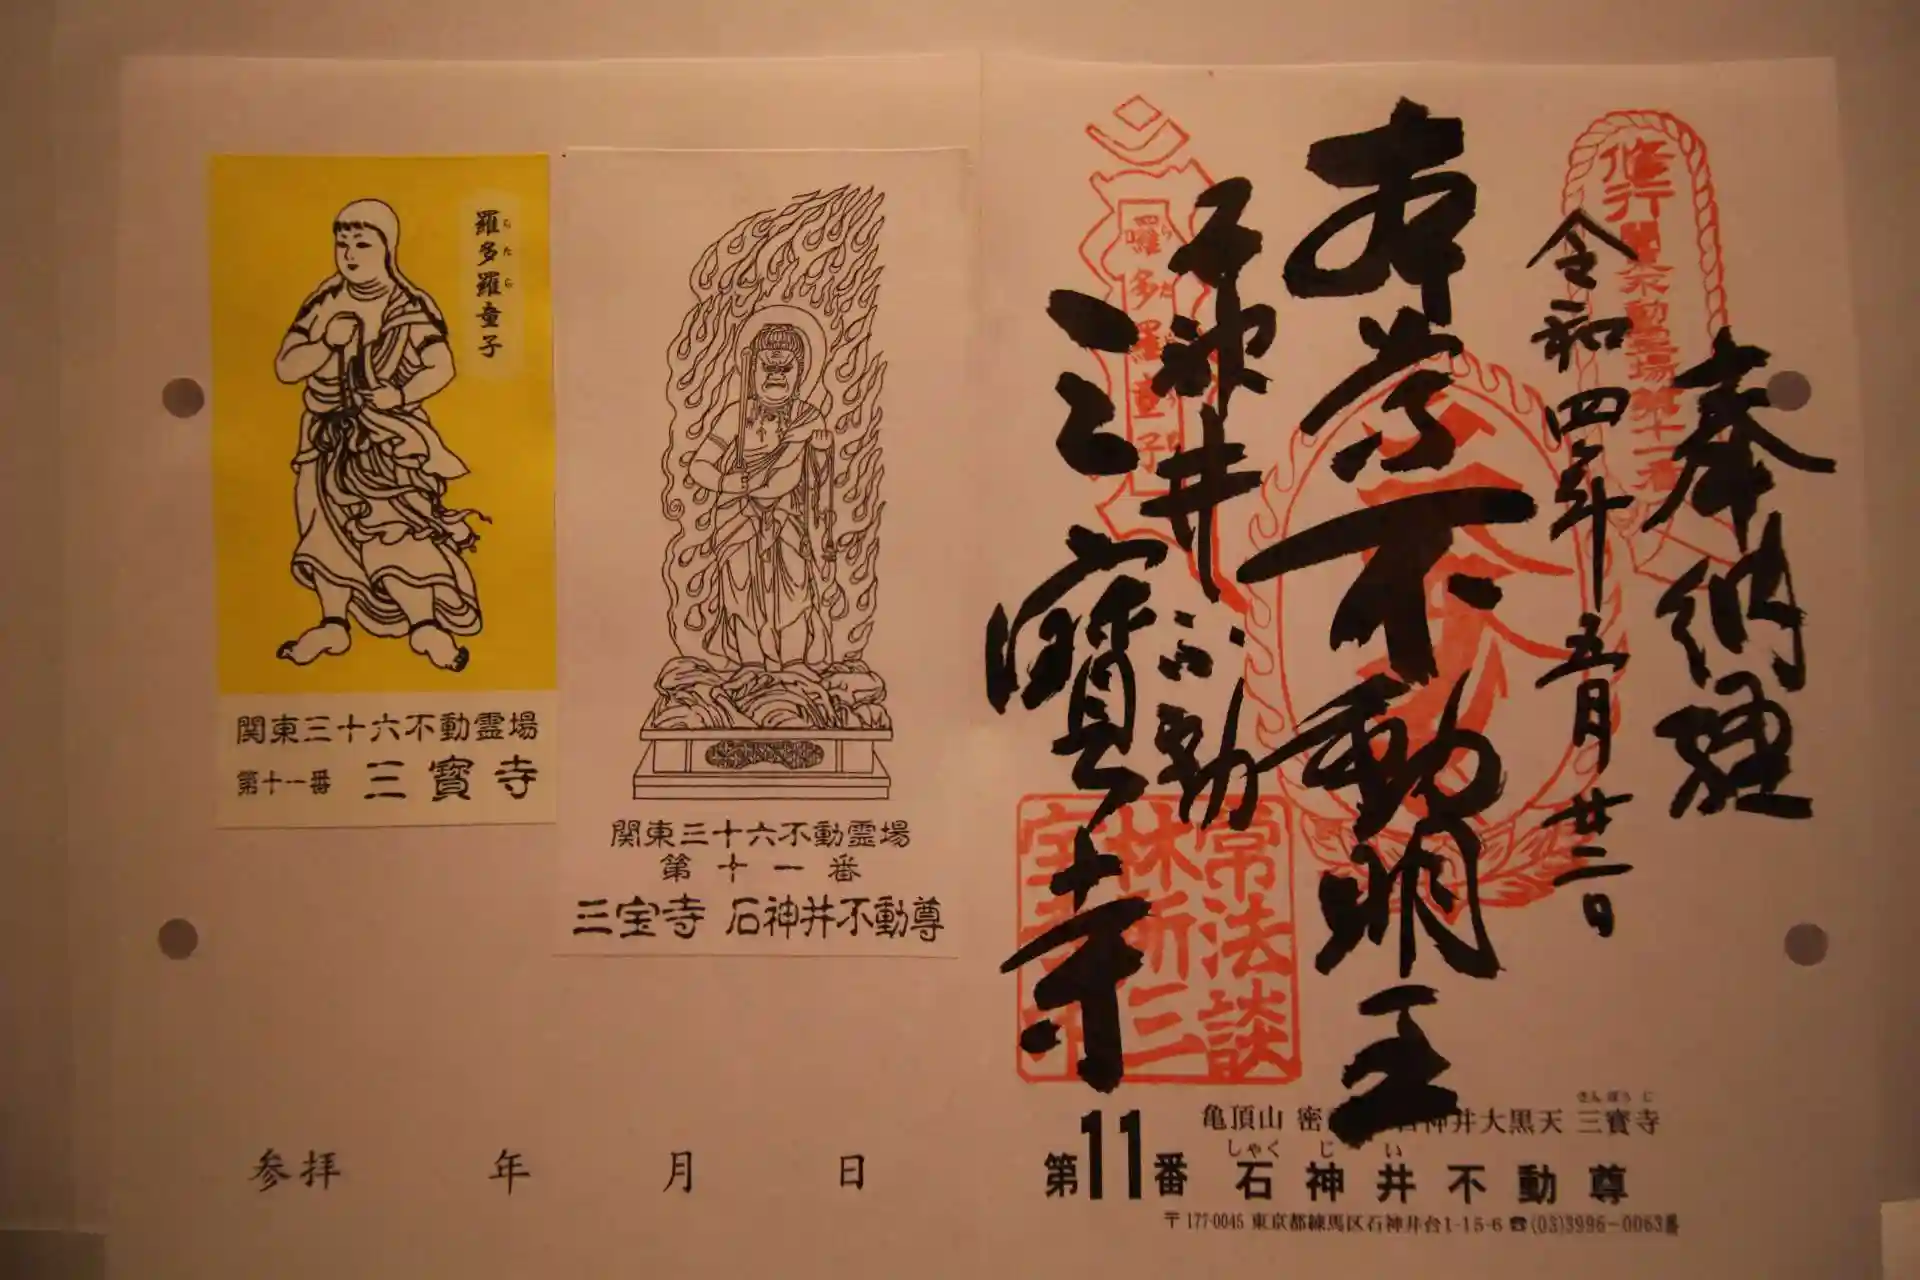 奉納経
令和四年五月廿二日
本尊不動明王
石神井不動
三寳寺
修行
関東不動霊場第十一番
羅多羅童子
らたら
常法談
林所三
亀頂山 密
神井大黒天 三寳寺
さんぽうじ
しゃくじい
第11番 石神井不動尊
〒177-0045 東京都練馬区石神井台1-15-6 ☎(03)3996-0063番
関東三十六不動霊場
第十一番
三宝寺 石神井不動尊
羅多羅童子
らたら
関東三十六不動霊場
第十一番 三寳寺
参拝 年 月 日